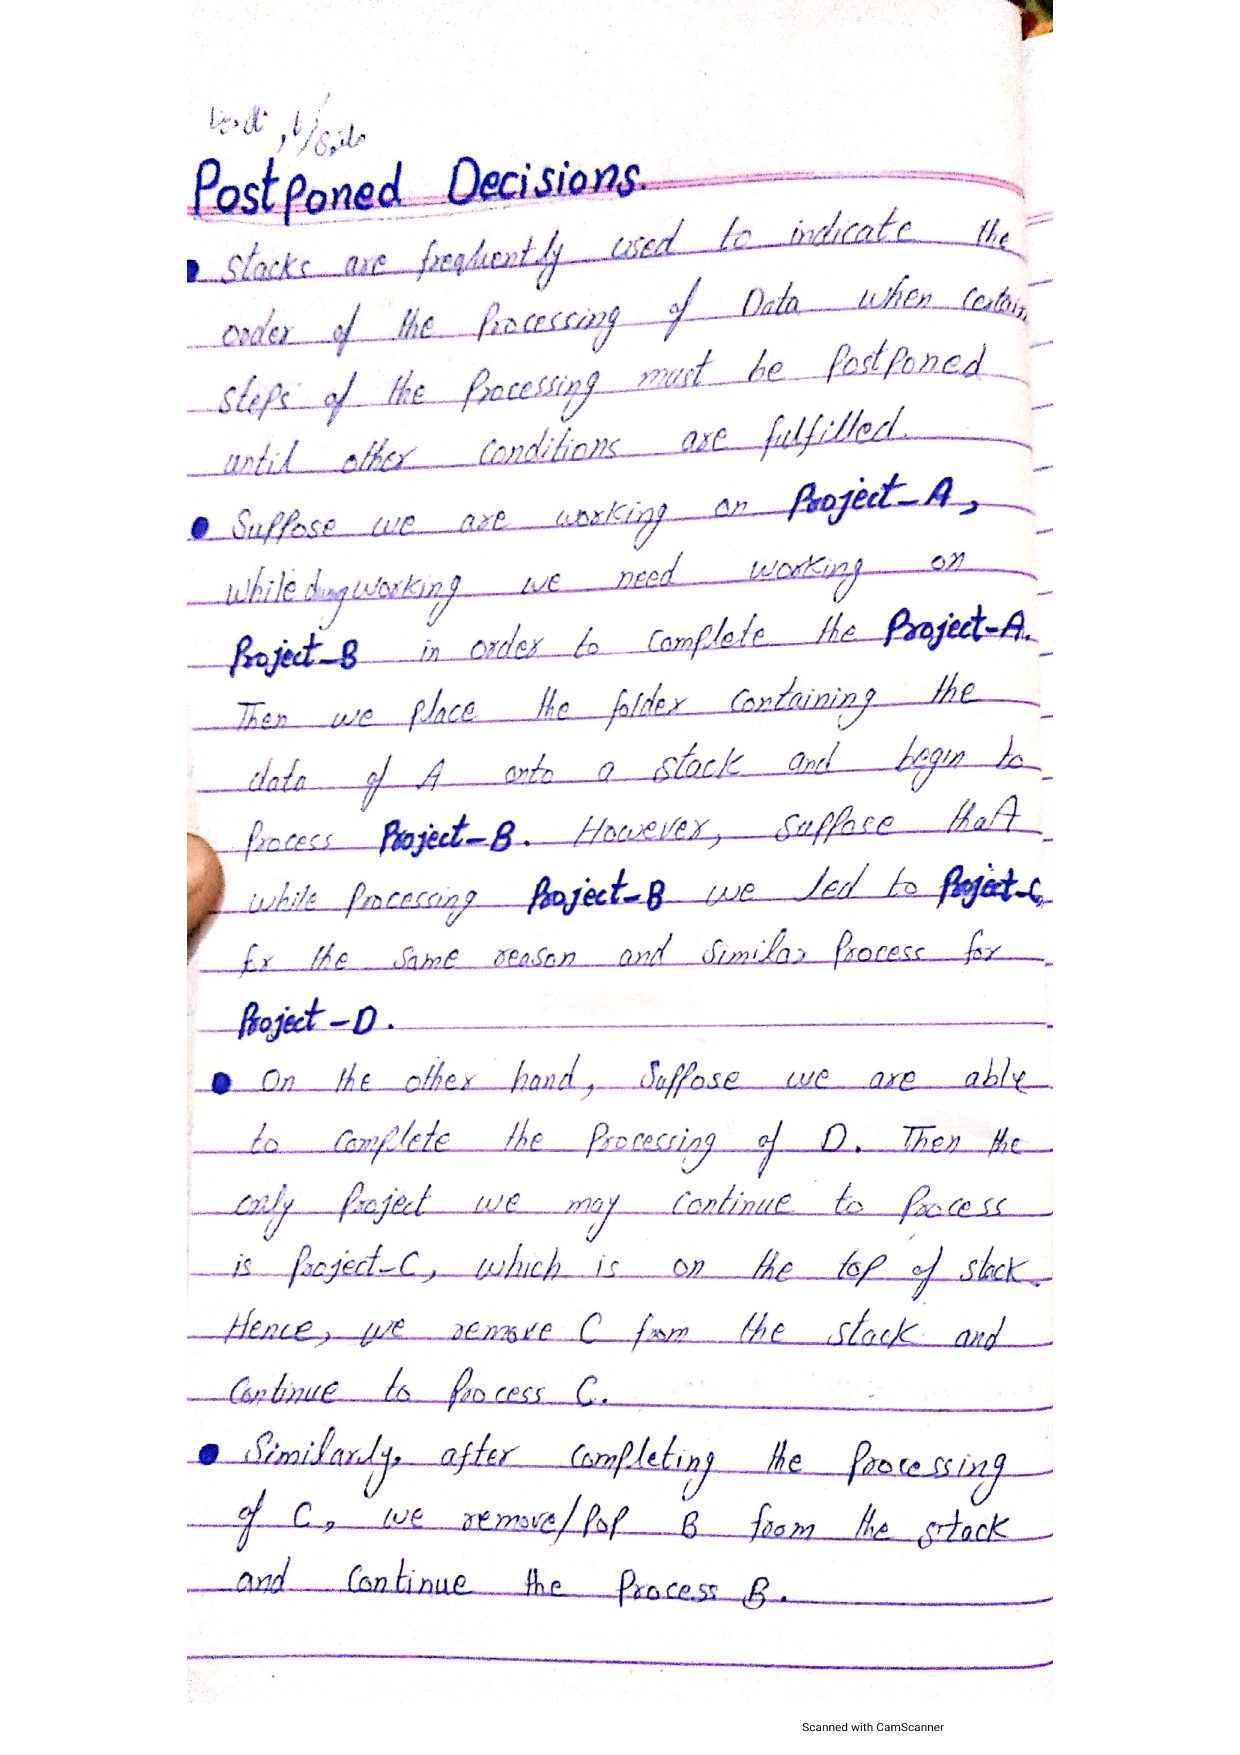 Postponed Decisions.
• stacks are frequently used to indicate the
order of the Processing of Data when certain
steps of the Processing must be Postponed
until other conditions are fulfilled.
• Suppose we are working on Project-A,
while working we need working on
Project-B in order to complete the Project-A.
Then we place the folder containing the
data of A onto a stack and begin to
Process Project-B. However, suppose that
while Processing Project-B we led to Project-C,
for the same reason and similar Process for
Project-D.
• On the other hand, Suppose we are able
to complete the Processing of D. Then the
only Project we may continue to Process
is Project-C, which is on the top of stack.
Hence, we remove C from the stack and
Continue to Process C.
• Similarly, after completing the Processing
of C, we remove/Pop B from the stack
and Continue the Process B.
Scanned with CamScanner